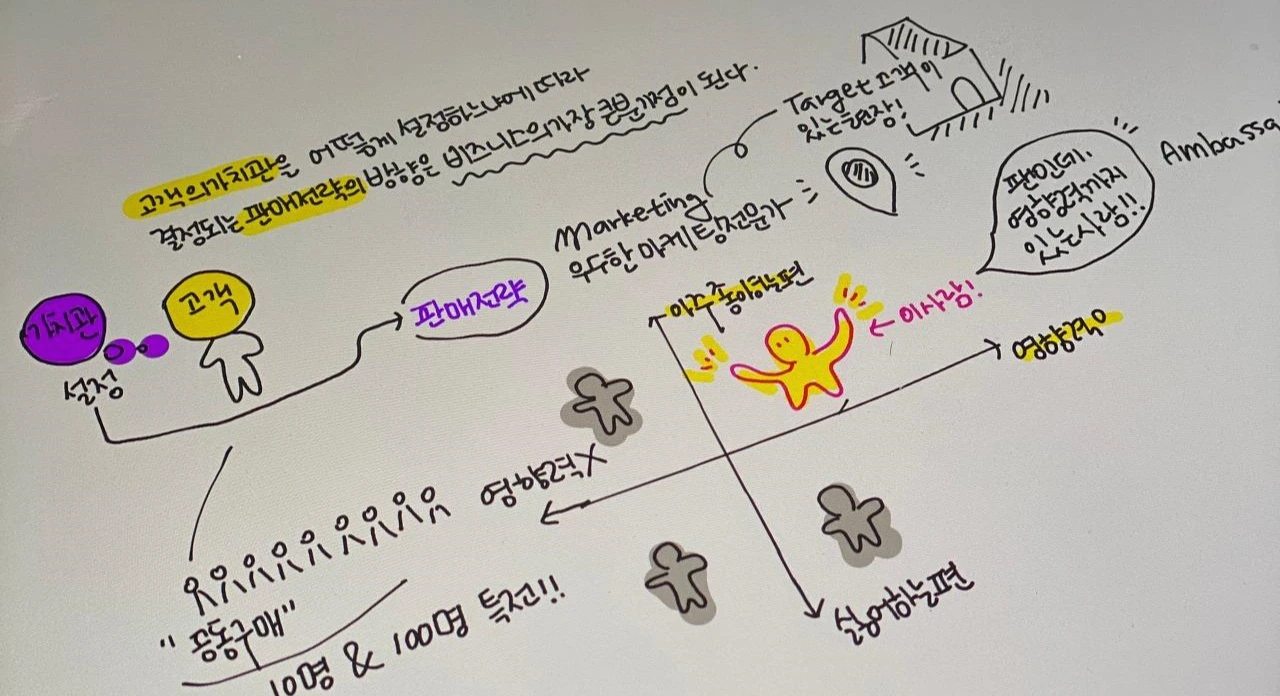 고객의 가치관을 어떻게 설정하느냐에 따라
결정되는 판매전략의 방향은 비즈니스의 가장 큰 분기점이 된다.
가치관
설정
고객
판매전략
Marketing
우수한 마케팅전문가
Target 고객이
있는 현장!
팬인데,
영향력까지
있는 사람!!
Ambassa
아주 좋아하는편
이사람!
영향력O
영향력X
싫어하는편
"공동구매"
10명 & 100명 특전!!